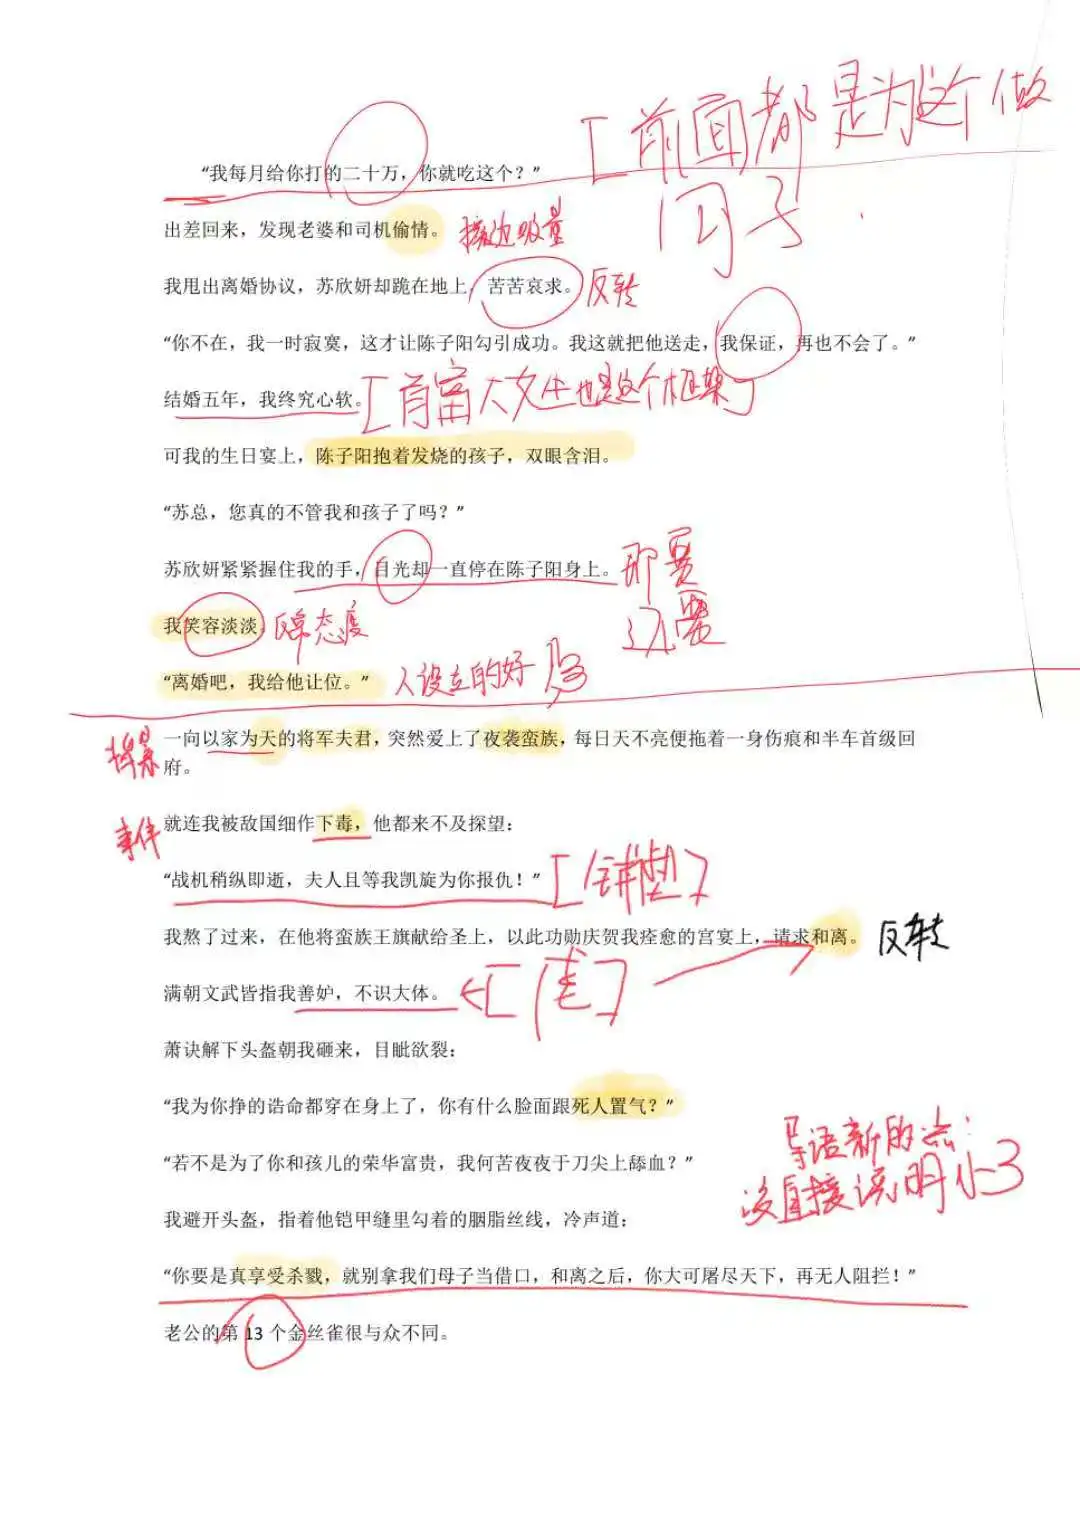 [前面都是为这个做
“我每月给你打的二十万，你就吃这个？”
出差回来，发现老婆和司机偷情。
擦边吸量
我甩出离婚协议，苏欣妍却跪在地上，苦苦哀求。
反转
“你不在，我一时寂寞，这才让陈子阳勾引成功。我这就把他送走，我保证，再也不会了。”
结婚五年，我终究心软。
[首富大女主也是这个框架]
可我的生日宴上，陈子阳抱着发烧的孩子，双眼含泪。
“苏总，您真的不管我和孩子了吗？”
苏欣妍紧紧握住我的手，目光却一直停在陈子阳身上。
我笑容淡淡。
反常态度
“离婚吧，我给他让位。”
人设立的好
一向以家为天的将军夫君，突然爱上了夜袭蛮族，每日天不亮便拖着一身伤痕和半车首级回
府。
就连我被敌国细作下毒，他都来不及探望：
事件
“战机稍纵即逝，夫人且等我凯旋为你报仇！”
[铺垫]
我熬了过来，在他将蛮族王旗献给圣上，以此功勋庆贺我痊愈的宫宴上，请求和离。
反转
满朝文武皆指我善妒，不识大体。
萧诀解下头盔朝我砸来，目眦欲裂：
“我为你挣的诰命都穿在身上了，你有什么脸面跟死人置气？”
“若不是为了你和孩儿的荣华富贵，我何苦夜夜于刀尖上舔血？”
导语新的点：
没直接说明小3
我避开头盔，指着他铠甲缝里勾着的胭脂丝线，冷声道：
“你要是真享受杀戮，就别拿我们母子当借口，和离之后，你大可屠尽天下，再无人阻拦！”
老公的第 13 个金丝雀很与众不同。